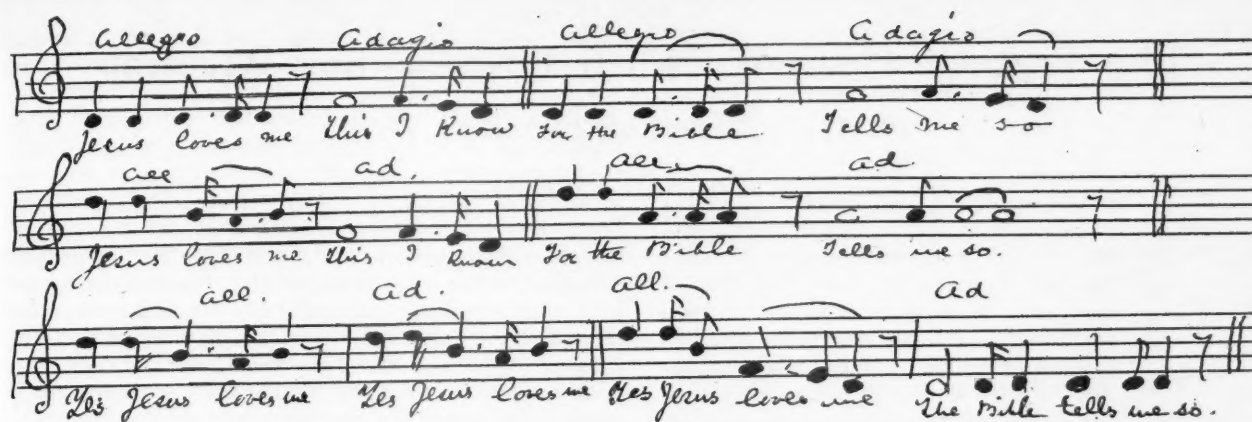 Allegro Adagio Allegro Adagio
Jesus loves me This I Know For the Bible Tells me so
all ad. all. ad.
Jesus loves me This I Know For the Bible Tells me so.
all. Ad. all. Ad
Yes Jesus loves me Yes Jesus loves me Yes Jesus loves me The Bible tells me so.